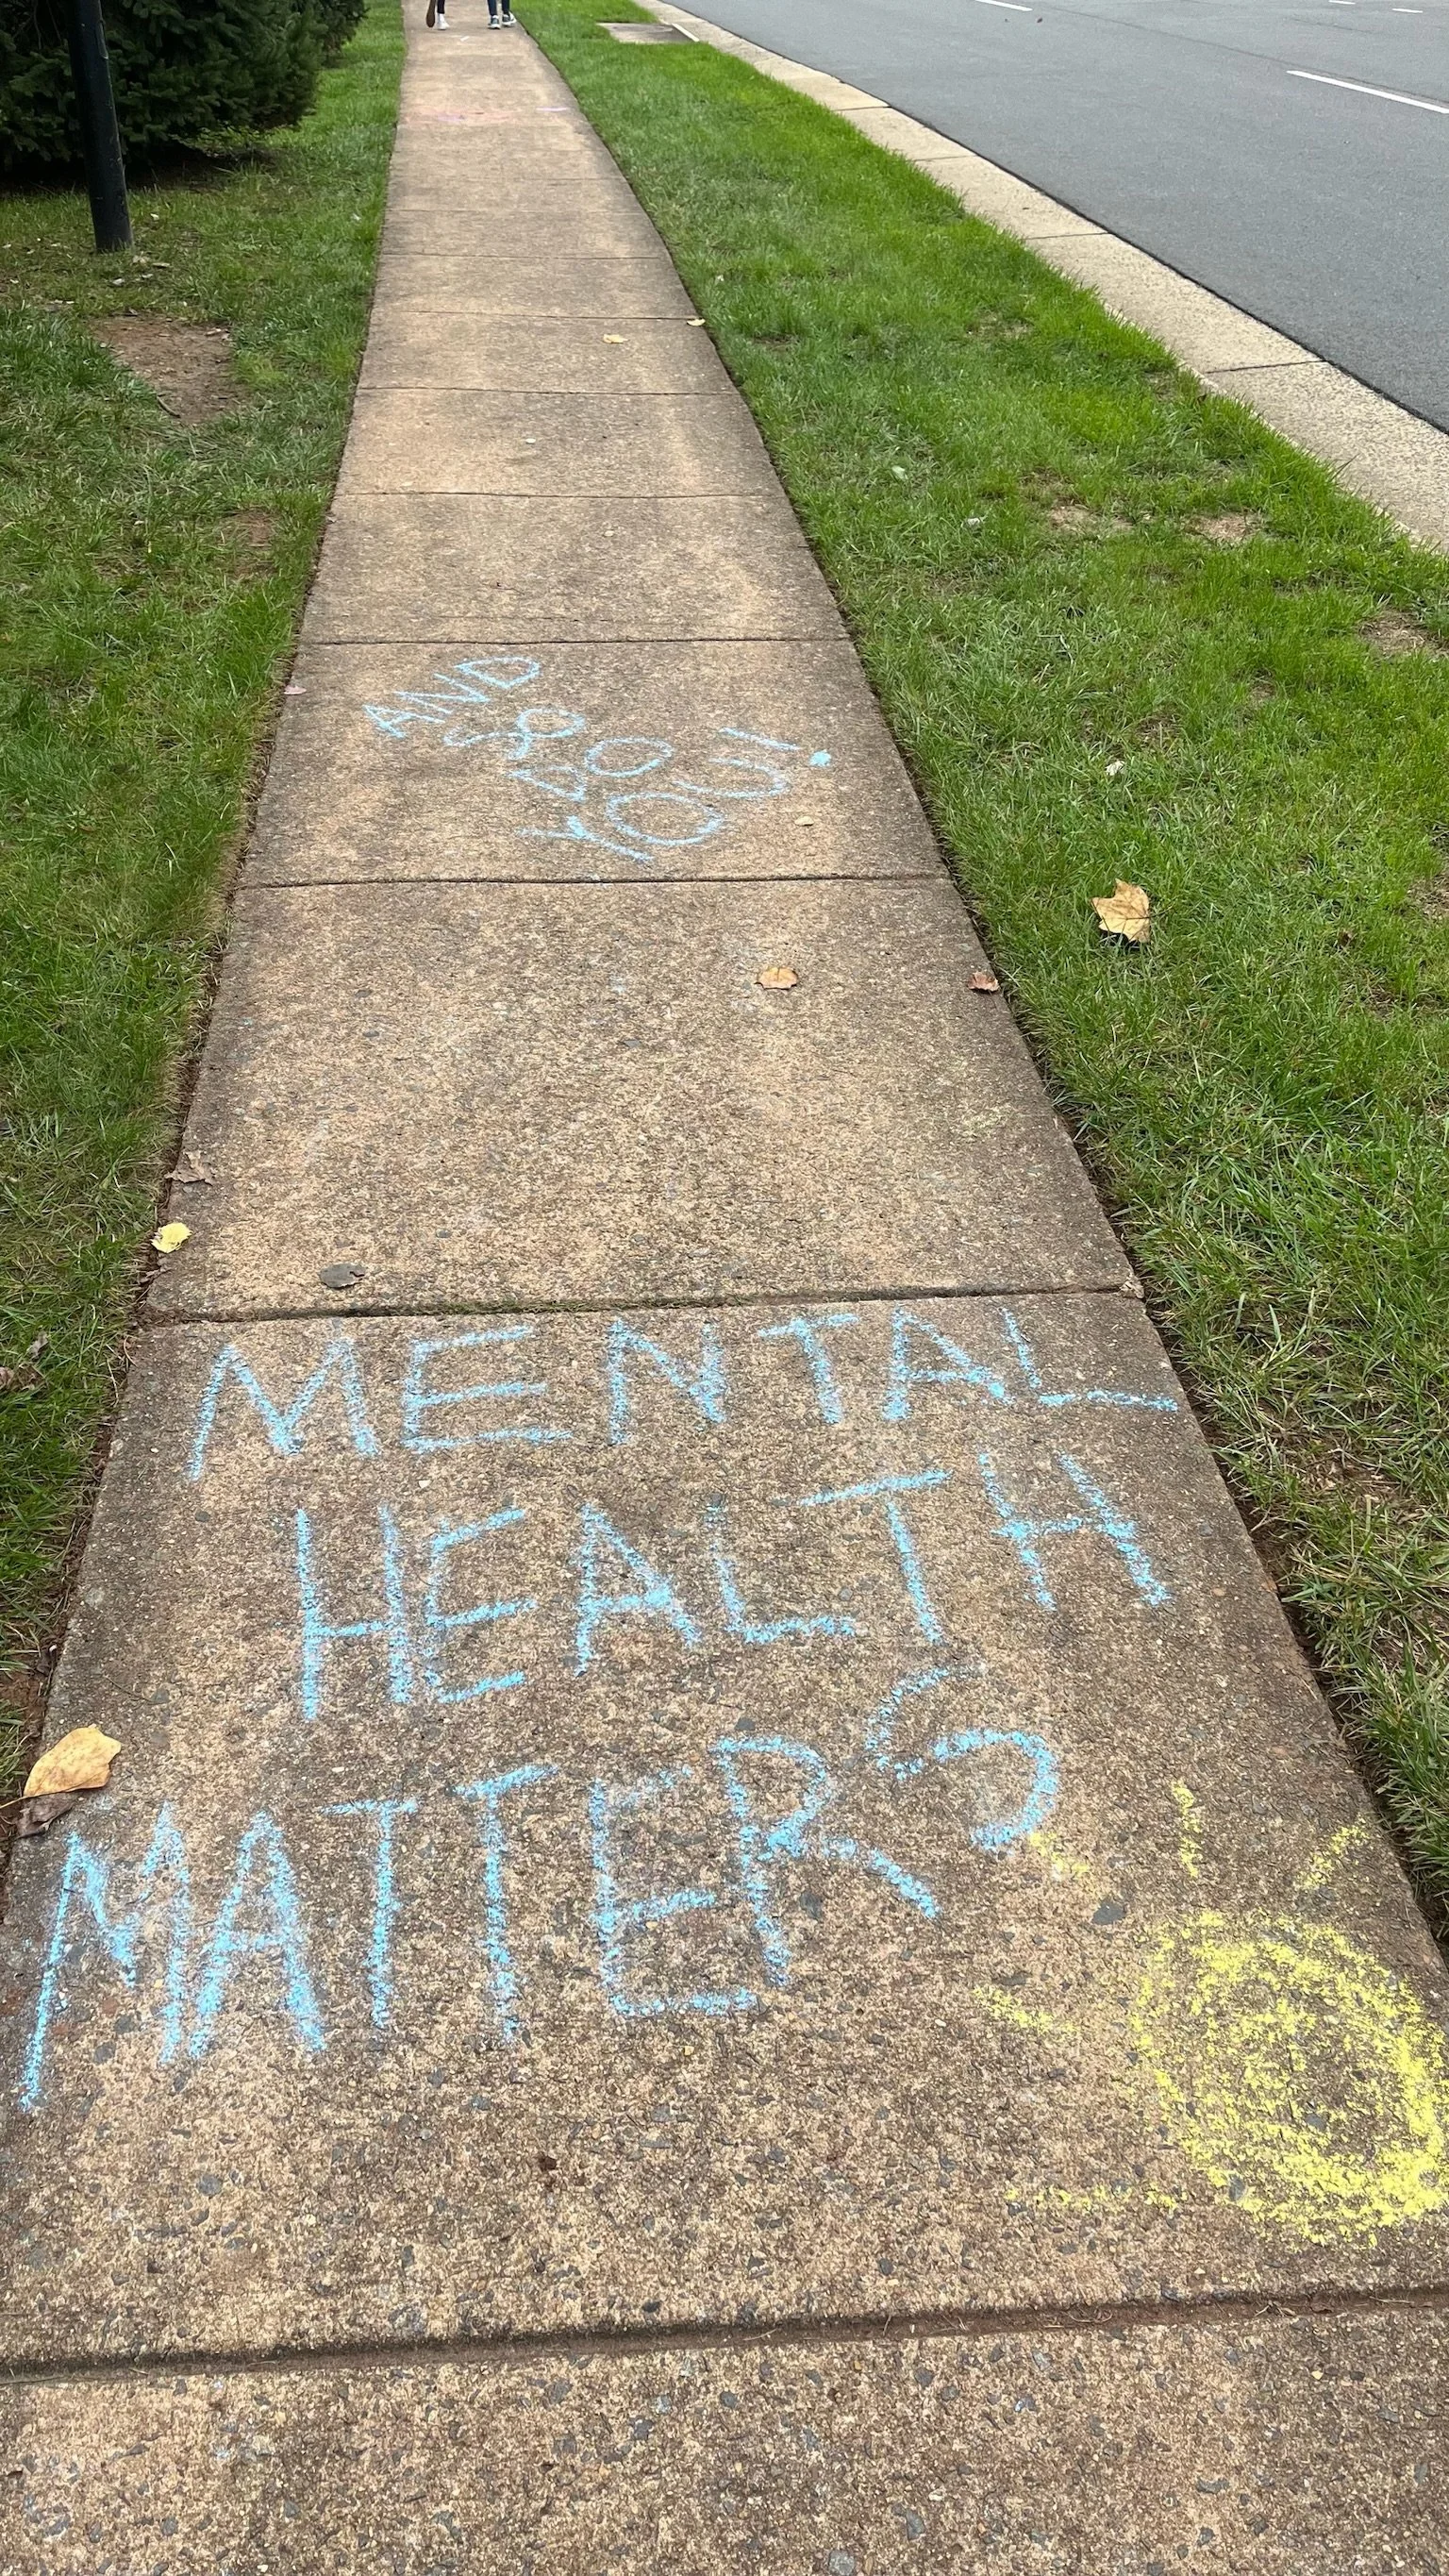 MENTAL
HEALTH
MATTERS
AND
SO
DO
YOU!